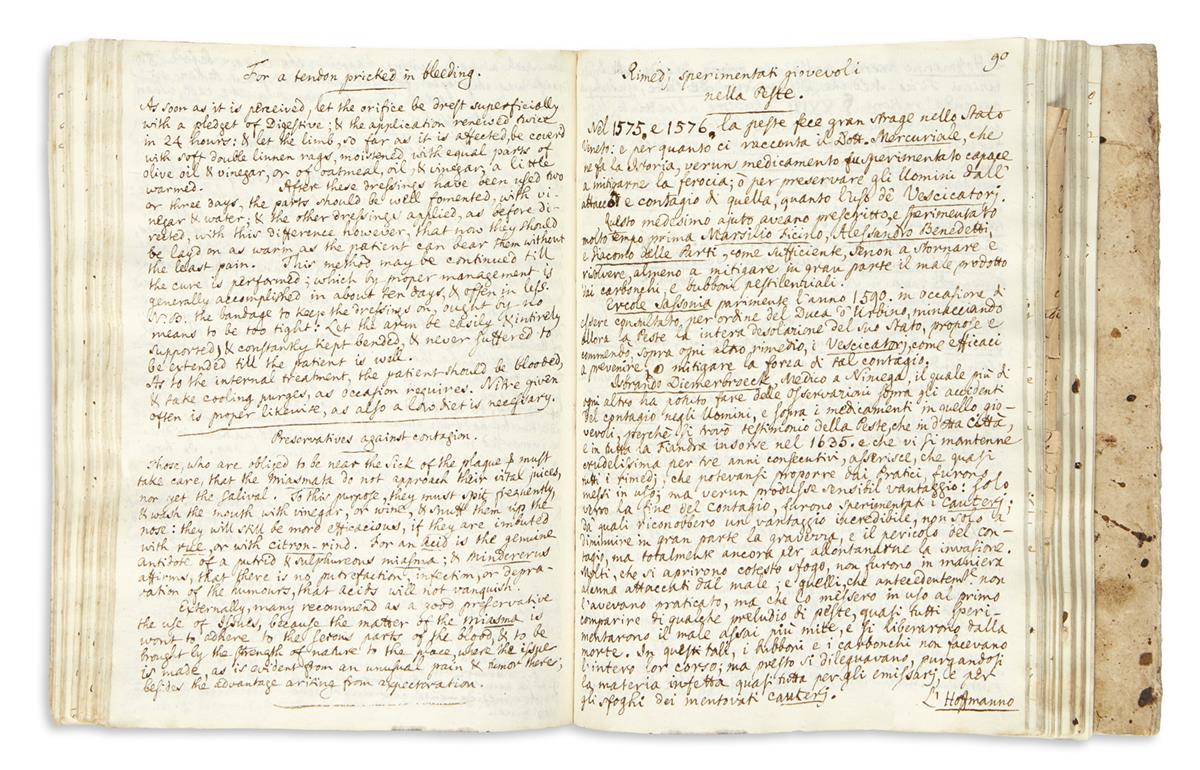 For a tendon pricked in bleeding.
As soon as it is perceived, let the orifice be drest superficially
with a pledget of Digestive; & the application renewed twice
in 24 hours: & let the limb, so far as it is affected, be cover'd
with soft double linnen rags, moistened, with equal parts of
olive oil & vinegar, or of oatmeal, oil, & vinegar, a little
warmed. After these dressings have been used two
or three days, the parts should be well fomented, with vi-
negar & water; & the other dressings applied, as before di-
rected, with this difference however, that now they should
be lay'd on as warm as the patient can bear them without
the least pain. This method may be continued till
the cure is performed; which by proper management is
generally accomplished in about ten days, & often in less.
N.B. the bandage to keep the dressings on, ought by no
means to be too tight: Let the arm be easily & intirely
supported, & constantly kept bended, & never suffered to
be extended till the patient is well.
As to the internal treatment, the patient should be blooded,
& take cooling purges, as occasion requires. Nitre given
often is proper likewise, as also a low diet is necessary.
Preservatives against contagion.
Those, who are obliged to be near the sick of the plague, must
take care, that the miasmata do not approach their vital juices,
nor yet the salival. To this purpose, they must spit frequently,
& wash the mouth with vinegar, or wine, & snuff them up the
nose: they will still be more efficacious, if they are imbuted
with rue, or with citron-rind. For an acid is the genuine
antidote of a putred & sulphureous miasma; & Mindererus
affirms, that there is no putrefaction, infection, or depra-
vation of the humours, that acids will not vanquish.
Externally, many recommend as a good preservative
the use of issues, because the matter of the miasma is
wont to adhere to the serous parts of the blood, & to be
brought by the strength of nature to the place, where the issue
is made, as is evident from an unusual pain & humor there;
besides the advantage arising from expectoration.
90
Rimedj sperimentati giovevoli
nella Peste.
Nel 1575, e 1576, la peste fece gran strage nello Stato
Veneto: e per quanto ci racconta il Dott. Mercuriale, che
ne fa la Istoria, verun medicamento fu sperimentato capace
a mitigarne la ferocia; ò per preservare gli Uomini dall'
attacco e contagio di quella, quanto l'uso de Vescicatorj.
Questo medesimo ajuto aveano prescritto, e sperimentato
molto tempo prima Marsilio Ficino, Alessandro Benedetti,
e Jaconto delle Parti, come sufficiente, se non a stornare e
risolvere, almeno a mitigare in gran parte il male prodotto
dai carbonchi, e bubboni pestilenziali.
Ercole Sassonia parimente l'anno 1590. in occasione di
essere consultato, per ordine del Duca d'Urbino, minacciando
allora la Peste la intera desolazione del suo Stato, propose e
commendò, sopra ogni altro rimedio, i Vescicatorj, come efficaci
a prevenire, o mitigare la forza di tal contagio.
Isbrando Diemerbroeck Medico a Nimega, il quale più di
ogni altro ha potuto fare delle osservazioni sopra gli accidenti
del contagio negli Uomini, e sopra i medicamenti in quello gio-
vevoli, perchè si trovò testimonio della Peste, che in detta Città,
e in tutta la Fiandra insorse nel 1635. e che vi si mantenne
crudelissima per tre anni consecutivi, asserisce, che quasi
tutti i rimedj, che potevansi proporre dai Pratici, furono
messi in uso; ma verun produsse sensibil vantaggio: solo
verso la fine del contagio, furono sperimentati i Cauterj,
di quali riconobbero un vantaggio incredibile, non solo in
diminuire in gran parte la gravezza, e il pericolo del con-
tagio, ma totalmente ancora per allontanarne la invasione.
Molti, che si aprirono cotesto sfogo, non furono in maniera
alcuna attaccati dal male; e quelli, che antecedentemte non
l'avevano praticato, ma che lo messero in uso al primo
comparire di qualche preludio di peste, quasi tutti speri-
mentarono il male assai più mite, e si liberarono dalla
morte. In questi tali, i bubboni e i carbonchi non facevano
l'intero lor corso; ma presto si dileguavano, purgandosi
la materia infetta quasi tutta per gli emissarj, e per
gli sfoghi dei mentovati cauterj.
L' Hoffmanno